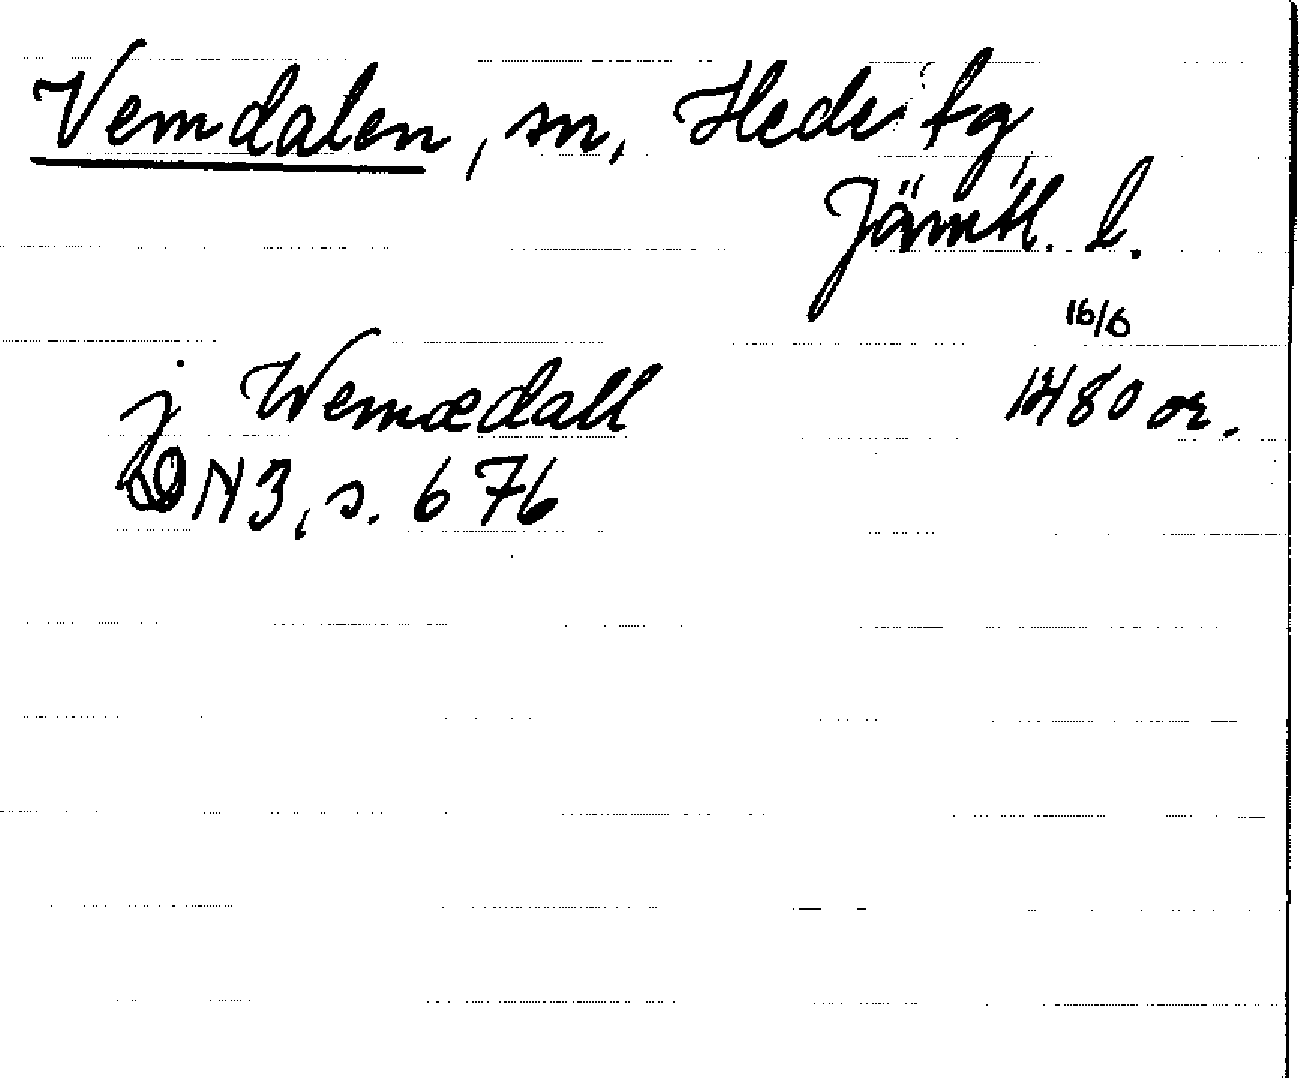 Vemdalen, sn, Hede tg,
Jämtl. l.
16/6
j Wemædall 1480 or.
DN3, s. 676